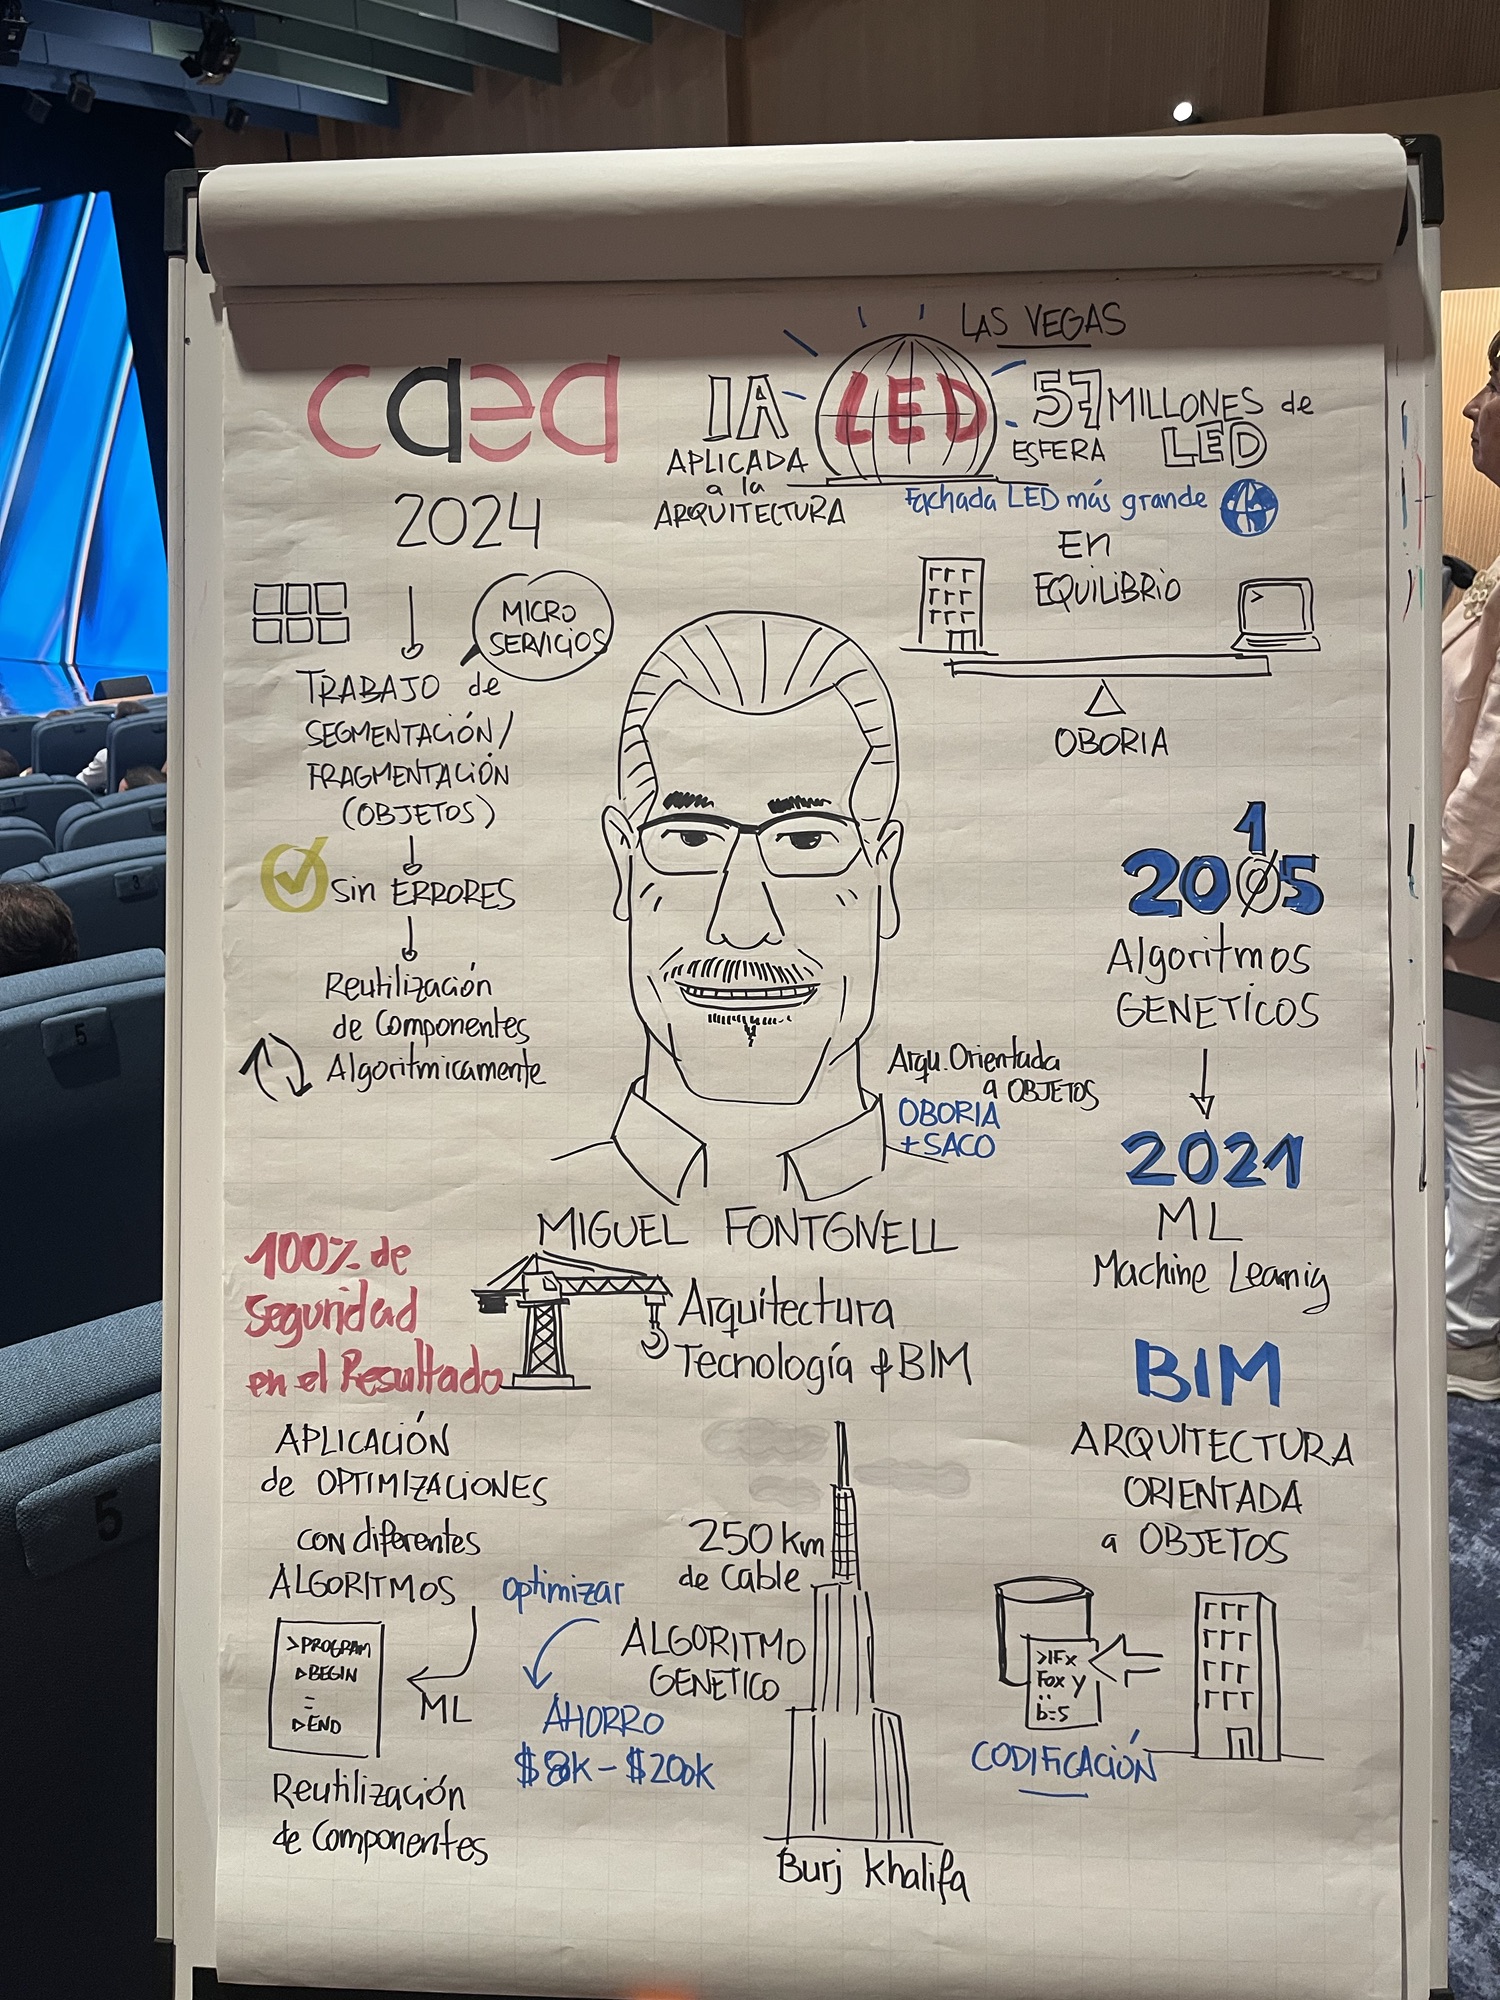 caea
2024
LAS VEGAS
IA
APLICADA
a la
ARQUITECTURA
LED
57 MILLONES de
ESFERA LED
Fachada LED más grande
En
EQUILIBRIO
OBORIA
MICRO
SERVICIOS
TRABAJO de
SEGMENTACIÓN/
FRAGMENTACIÓN
(OBJETOS)
Sin ERRORES
Reutilización
de Componentes
Algoritmicamente
2005
1
Algoritmos
GENETICOS
2021
ML
Machine Learnig
Arqu. Orientada
a OBJETOS
OBORIA
+ SACO
MIGUEL FONTGNELL
Arquitectura
Tecnología & BIM
100% de
Seguridad
en el Resultado
APLICACIÓN
de OPTIMIZACIONES
CON diferentes
ALGORITMOS
>PROGRAM
▷BEGIN
▷END
ML
Reutilización
de Componentes
optimizar
AHORRO
$8k - $200k
250 km
de Cable
ALGORITMO
GENETICO
Burj Khalifa
BIM
ARQUITECTURA
ORIENTADA
a OBJETOS
>IFx
Fox y
b=5
CODIFICACIÓN
5
5